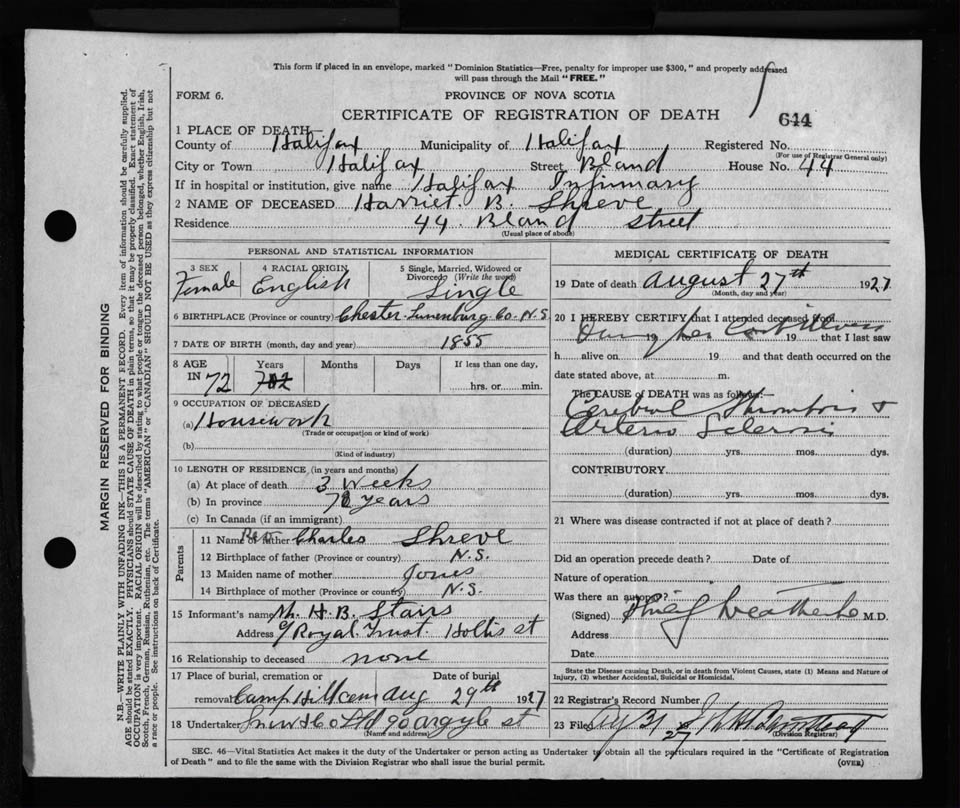 This form if placed in an envelope, marked "Dominion Statistics—Free, penalty for improper use $300," and properly addressed
will pass through the Mail "FREE."
FORM 6.
PROVINCE OF NOVA SCOTIA
CERTIFICATE OF REGISTRATION OF DEATH
644
1 PLACE OF DEATH—
County of Halifax Municipality of Halifax Registered No.
(For use of Registrar General only)
City or Town Halifax Street Bland House No. 44
If in hospital or institution, give name Halifax Infirmary
2 NAME OF DECEASED Harriet B. Shreve
Residence 44. Bland street
(Usual place of abode)
PERSONAL AND STATISTICAL INFORMATION
3 SEX Female
4 RACIAL ORIGIN English
5 Single, Married, Widowed or
Divorced (Write the word) Single
6 BIRTHPLACE (Province or country) Chester Lunenburg Co. N.S.
7 DATE OF BIRTH (month, day and year) 1855
8 AGE Years Months Days If less than one day,
IN 72 hrs. or min.
9 OCCUPATION OF DECEASED
(a) Housework
(Trade or occupation or kind of work)
(b)
(Kind of industry)
10 LENGTH OF RESIDENCE (in years and months)
(a) At place of death 3 Weeks
(b) In province 72 years
(c) In Canada (if an immigrant)
Parents
11 Name of father Rev Charles Shreve
12 Birthplace of father (Province or country) N.S.
13 Maiden name of mother Jones
14 Birthplace of mother (Province or country) N.S.
15 Informant's name Mr H.B. Stairs
Address c/o Royal Trust. Hollis st
16 Relationship to deceased none
17 Place of burial, cremation or Date of burial
removal Camp Hill cem Aug 29th 1927
18 Undertaker Snow & Co Ltd 90 argyle st
(Name and address)
MEDICAL CERTIFICATE OF DEATH
19 Date of death August 27th 1927
(Month, day and year)
20 I HEREBY CERTIFY that I attended deceased from
During her last illness 19 19 that I last saw
h alive on 19 and that death occurred on the
date stated above, at m.
The CAUSE of DEATH was as follows:—
Cerebral Thrombosis &
Arterio Sclerosis
(duration) yrs. mos. dys.
CONTRIBUTORY
(duration) yrs. mos. dys.
21 Where was disease contracted if not at place of death?
Did an operation precede death? Date of
Nature of operation
Was there an autopsy?
(Signed) Philip Weatherbe M.D.
Address
Date
State the Disease causing Death, or in death from Violent Causes, state (1) Means and Nature of
Injury, (2) whether Accidental, Suicidal or Homicidal.
22 Registrar's Record Number
23 Filed Aug 31 27
(Division Registrar)
SEC. 46—Vital Statistics Act makes it the duty of the Undertaker or person acting as Undertaker to obtain all the particulars required in the "Certificate of Registration
of Death" and to file the same with the Division Registrar who shall issue the burial permit.
(OVER)
MARGIN RESERVED FOR BINDING
N.B.—WRITE PLAINLY WITH UNFADING INK—THIS IS A PERMANENT RECORD. Every item of information should be carefully supplied.
AGE should be stated EXACTLY. PHYSICIANS should STATE CAUSE OF DEATH in plain terms, so that it may be properly classified. Exact statement of
OCCUPATION is very important. RACIAL ORIGIN will be described by stating to what people or tongue the deceased person belonged, whether English, Irish,
Scotch, French, German, Russian, Ruthenian, etc. The terms "AMERICAN" or "CANADIAN" SHOULD NOT BE USED as they express citizenship but not
a race or people. See instructions on back of Certificate.